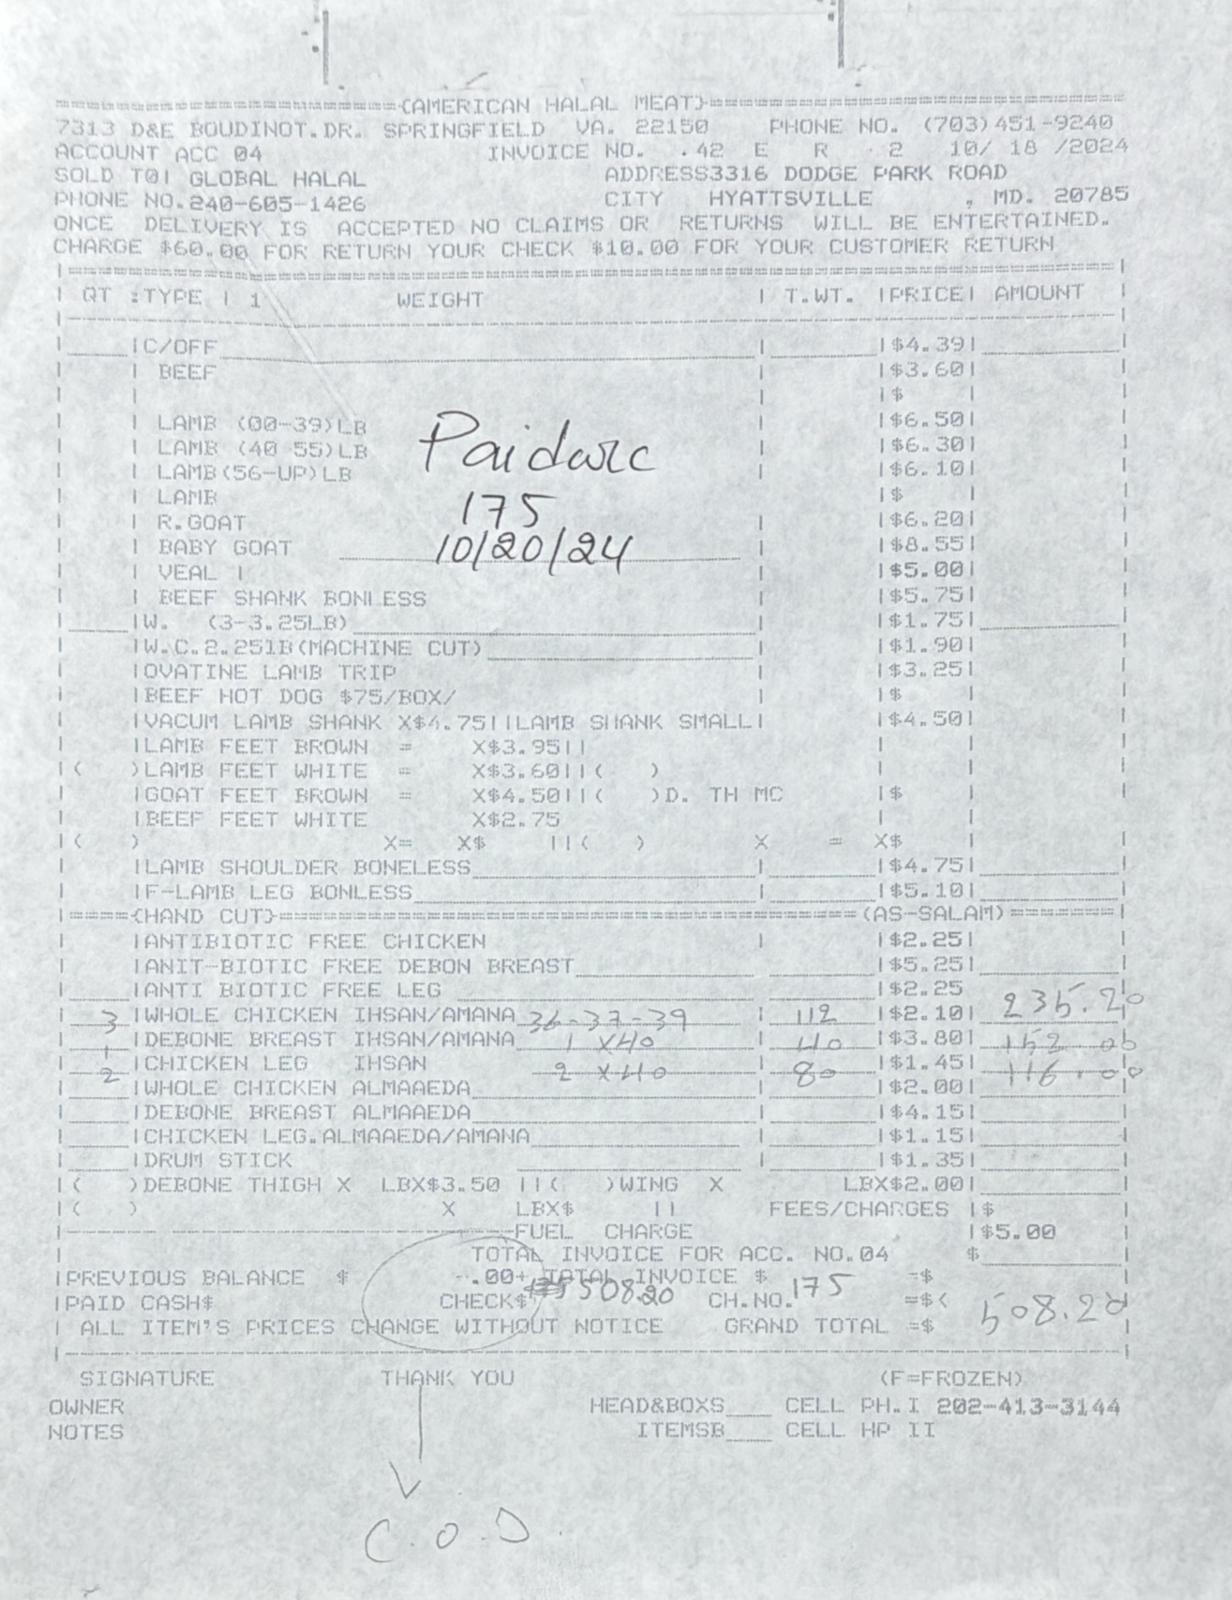 =={AMERICAN HALAL MEAT}==
7313 D&E BOUDINOT.DR. SPRINGFIELD VA. 22150 PHONE NO. (703)451-9240
ACCOUNT ACC 04 INVOICE NO. .42 E R 2 10/ 18 /2024
SOLD TO| GLOBAL HALAL ADDRESS3316 DODGE PARK ROAD
PHONE NO.240-605-1426 CITY HYATTSVILLE , MD. 20785
ONCE DELIVERY IS ACCEPTED NO CLAIMS OR RETURNS WILL BE ENTERTAINED.
CHARGE $60.00 FOR RETURN YOUR CHECK $10.00 FOR YOUR CUSTOMER RETURN
| QT :TYPE | 1 WEIGHT | T.WT. |PRICE| AMOUNT |
|C/OFF |$4.39|
| BEEF |$3.60|
|$ |
| LAMB (00-39)LB |$6.50|
| LAMB (40 55)LB |$6.30|
| LAMB(56-UP)LB |$6.10|
Paid
| LAMB |$ |
175
| R.GOAT |$6.20|
| BABY GOAT |$8.55|
10/20/24
| VEAL | |$5.00|
| BEEF SHANK BONLESS |$5.75|
|W. (3-3.25LB) |$1.75|
|W.C.2.25lB(MACHINE CUT) |$1.90|
|OVATINE LAMB TRIP |$3.25|
|BEEF HOT DOG $75/BOX/ |$ |
|VACUM LAMB SHANK X$4.75||LAMB SHANK SMALL| |$4.50|
|LAMB FEET BROWN = X$3.95||
|( )LAMB FEET WHITE = X$3.60||( )
|GOAT FEET BROWN = X$4.50||( )D. TH MC |$ |
|BEEF FEET WHITE X$2.75
|( ) X= X$ ||( ) X = X$ |
|LAMB SHOULDER BONELESS |$4.75|
|F-LAMB LEG BONLESS |$5.10|
|===={HAND CUT}==(AS-SALAM)==|
|ANTIBIOTIC FREE CHICKEN | |$2.25|
|ANIT-BIOTIC FREE DEBON BREAST |$5.25|
|ANTI BIOTIC FREE LEG |$2.25
3 |WHOLE CHICKEN IHSAN/AMANA 36-37-39 112 |$2.10| 235.20
1 |DEBONE BREAST IHSAN/AMANA 1 x40 40 |$3.80| 152.00
2 |CHICKEN LEG IHSAN 2 x40 80 |$1.45| 116.00
|WHOLE CHICKEN ALMAAEDA |$2.00|
|DEBONE BREAST ALMAAEDA |$4.15|
|CHICKEN LEG.ALMAAEDA/AMANA |$1.15|
|DRUM STICK |$1.35|
|( )DEBONE THIGH X LBX$3.50 ||( )WING X LBX$2.00|
|( ) X LBX$ || FEES/CHARGES |$
FUEL CHARGE |$5.00
TOTAL INVOICE FOR ACC. NO.04 $
|PREVIOUS BALANCE $ .00+ TOTAL INVOICE $ =$
|PAID CASH$ CHECK$ 508.20 CH.NO. 175 =$<
| ALL ITEM'S PRICES CHANGE WITHOUT NOTICE GRAND TOTAL =$ 508.20
SIGNATURE THANK YOU (F=FROZEN)
OWNER HEAD&BOXS____ CELL PH.I 202-413-3144
NOTES ITEMSB____ CELL HP II
C.O.D.